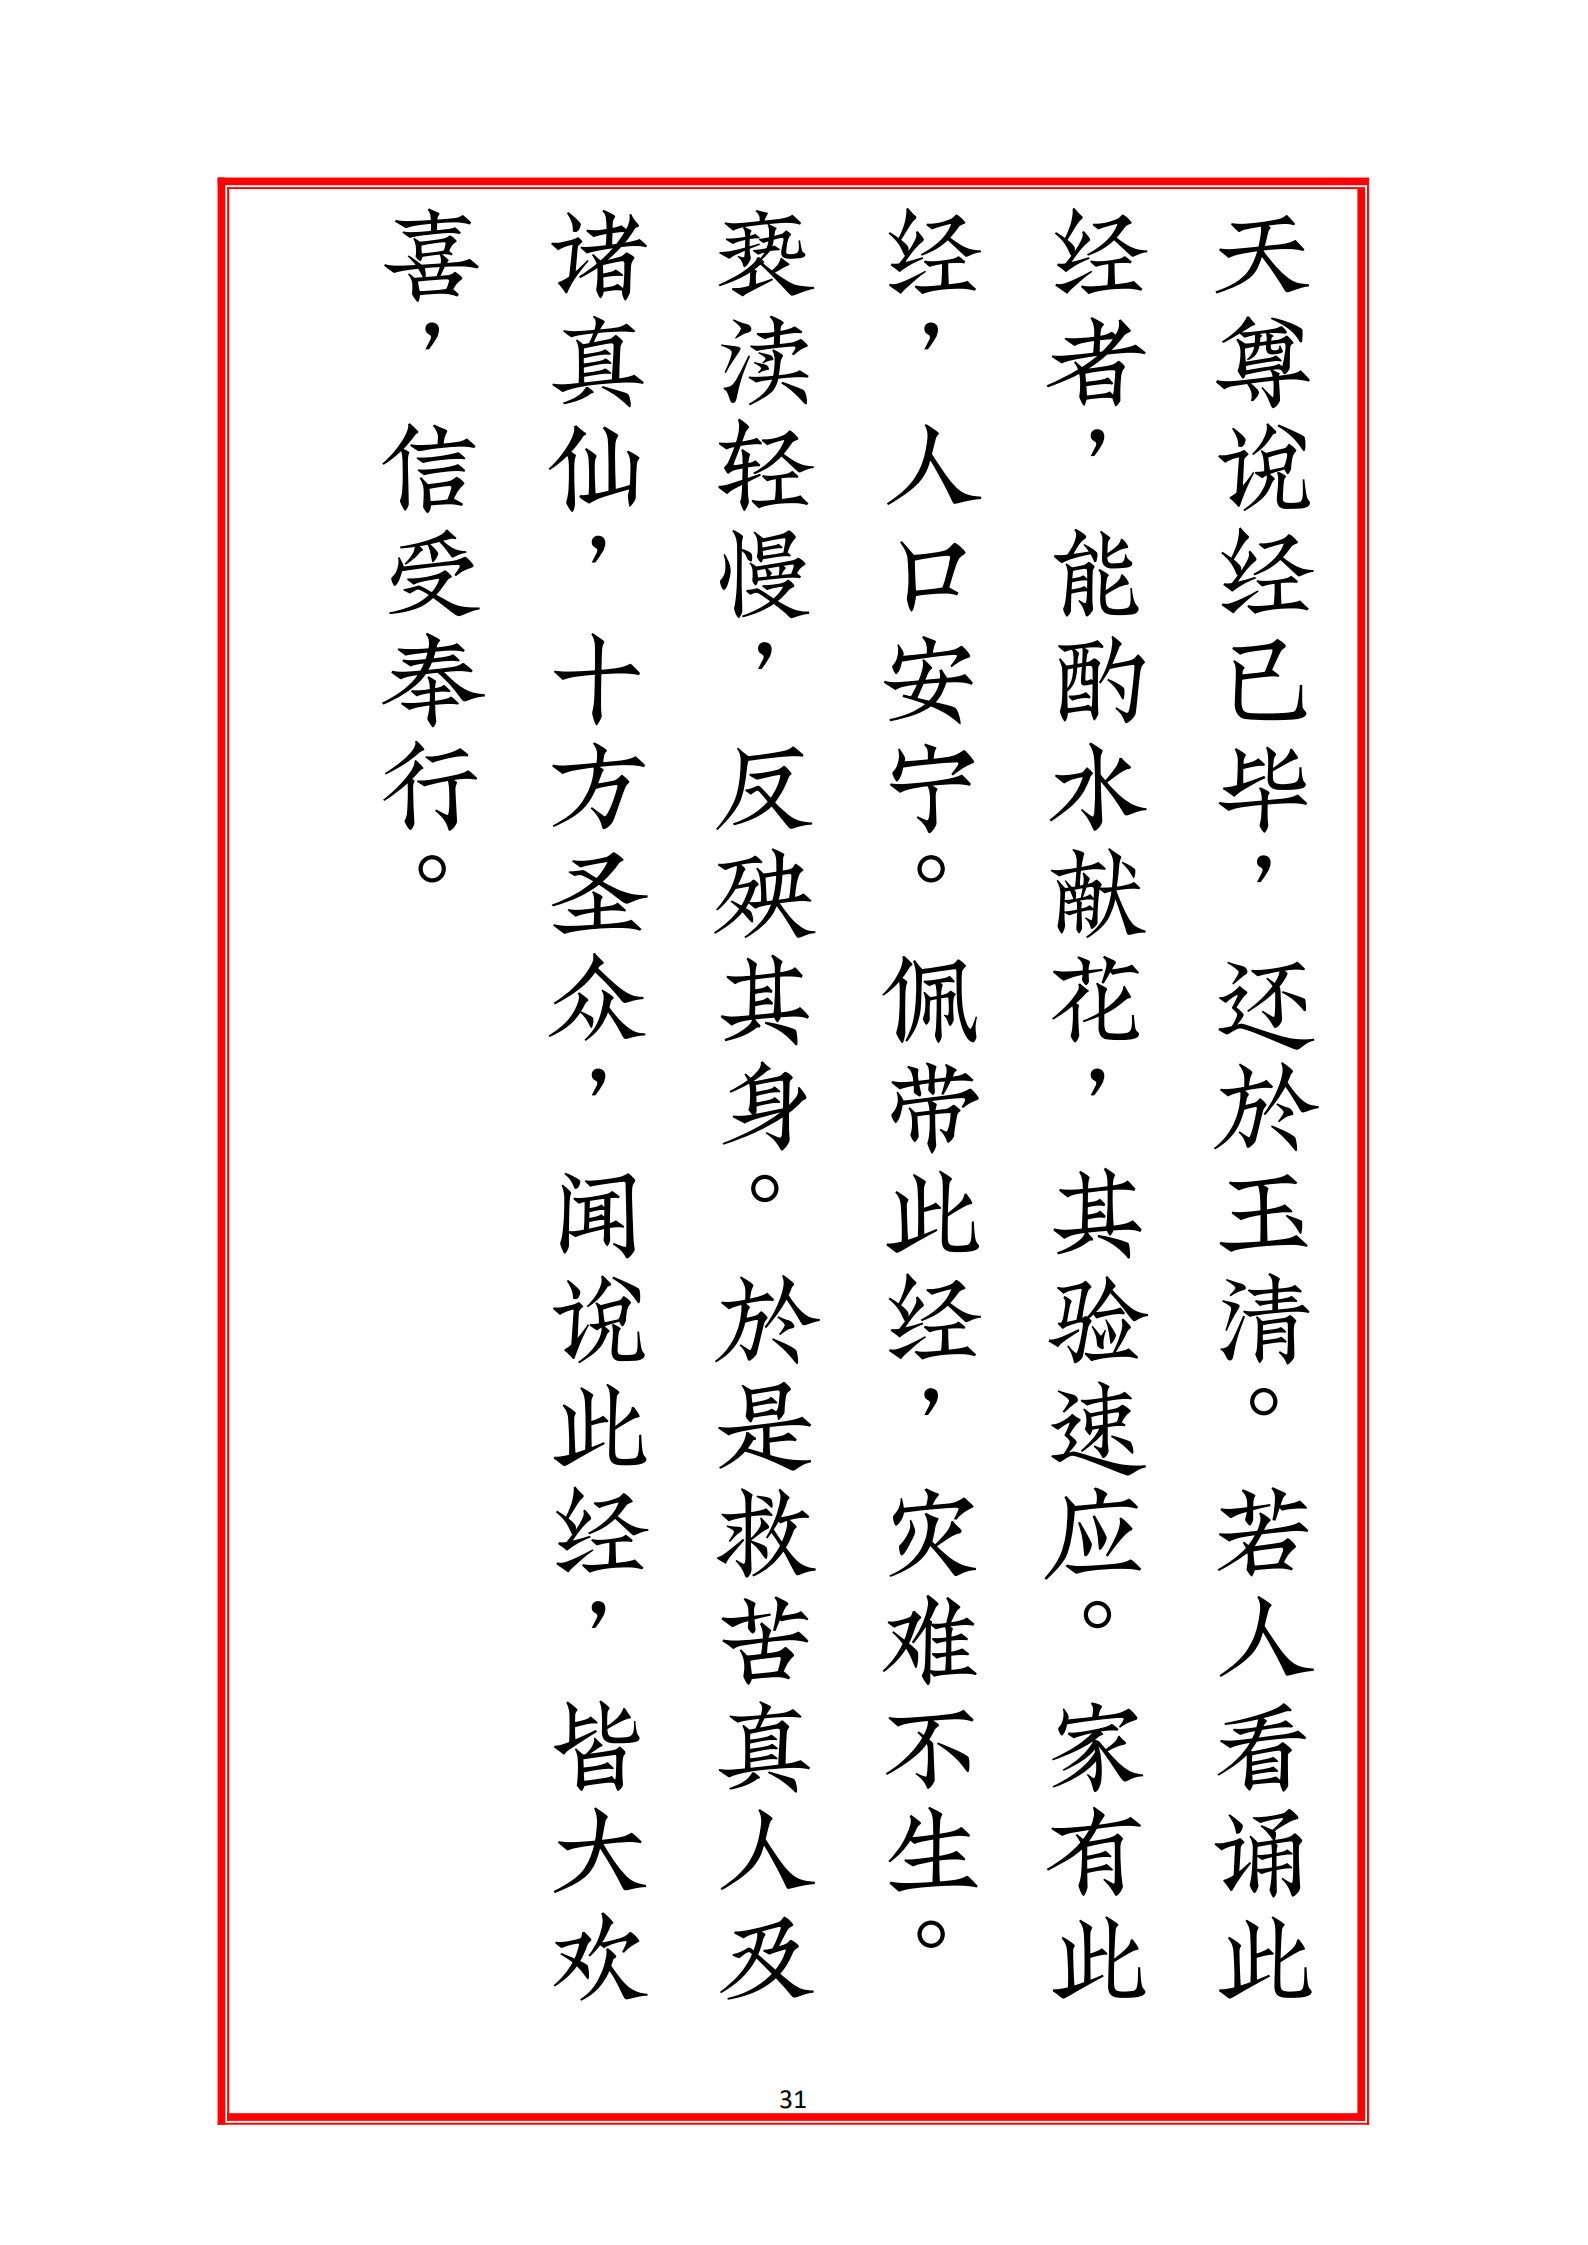 天尊说经已毕，还於玉清。若人看诵此
经者，能酌水献花，其验速应。家有此
经，人口安宁。佩带此经，灾难不生。
亵渎轻慢，反殃其身。於是救苦真人及
诸真仙，十方圣众，闻说此经，皆大欢
喜，信受奉行。
31